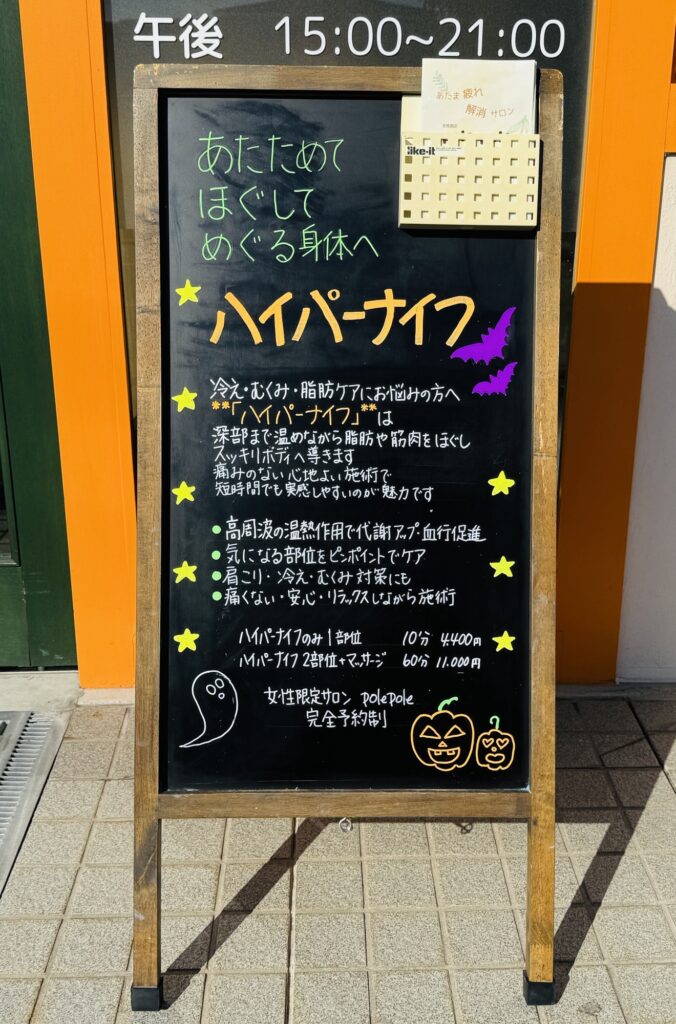 午後 15:00~21:00
あたま疲れ
解消サロン
like-it
あたためて
ほぐして
めぐる身体へ
ハイパーナイフ
冷え・むくみ・脂肪ケアにお悩みの方へ
**「ハイパーナイフ」**は
深部まで温めながら脂肪や筋肉をほぐし
スッキリボディへ導きます
痛みのない心地よい施術で
短時間でも実感しやすいのが魅力です
高周波の温熱作用で代謝アップ・血行促進
気になる部位をピンポイントでケア
肩こり・冷え・むくみ対策にも
痛くない・安心・リラックスしながら施術
ハイパーナイフのみ1部位 10分 4.400円
ハイパーナイフ 2部位+マッサージ 60分 11.000円
女性限定サロン polepole
完全予約制